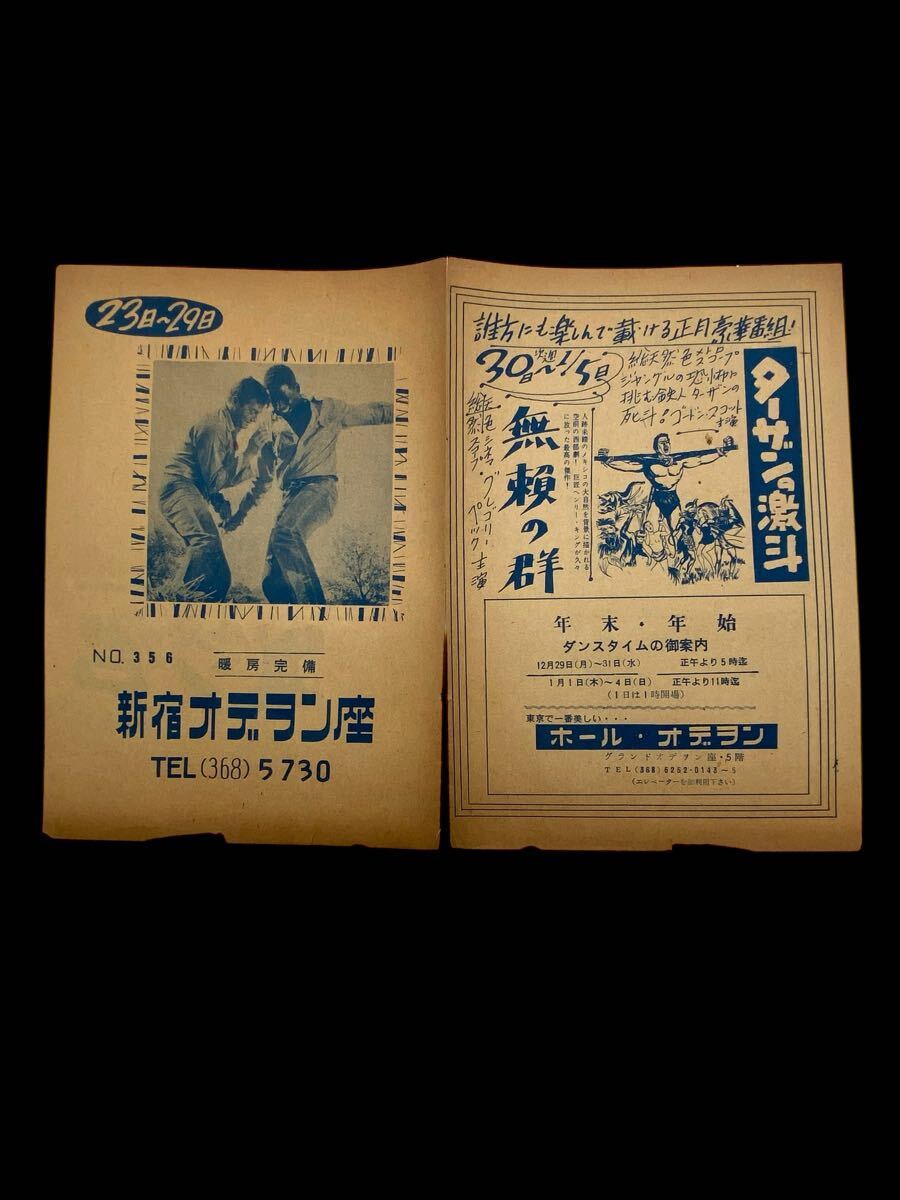 23日~29日
NO. 356
暖房完備
新宿オデヲン座
TEL(368)5730
誰方にも楽しんで載ける正月豪華番組!
次週
30日~1/5日
総天然色メトロスコープ
ジャングルの恐怖に
挑む鉄人ターザンの
死斗!ゴードン・スコット
主演
ターザンの激斗
人跡未踏のメキシコの大自然を背景に描かれる
空前の西部劇!巨匠ヘンリー・キングが久々
に放った最高の傑作!
無頼の群
総天然色シネマスコープ
グレゴリー・ペック主演
年末・年始
ダンスタイムの御案内
12月29日(月)~31日(水) 正午より5時迄
1月1日(木)~4日(日) 正午より11時迄
(1日は1時開場)
東京で一番美しい・・・
ホール・オデヲン
グランドオデヲン座・5階
TEL(368)6252・0143~5
(エレベーターを御利用下さい)